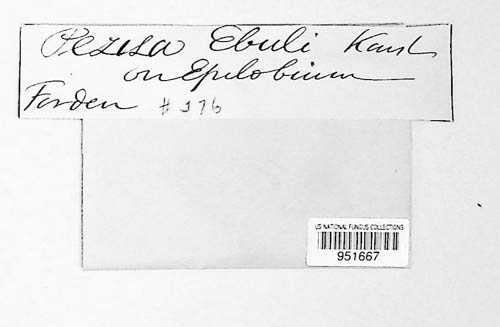 Pezisa Ebuli Karst
on Epilobium
Forden # 376
US NATIONAL FUNGUS COLLECTIONS
951667